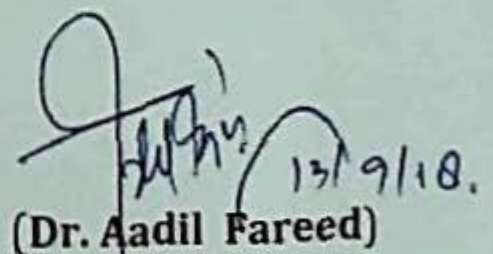 13/9/18.
(Dr. Aadil Fareed)